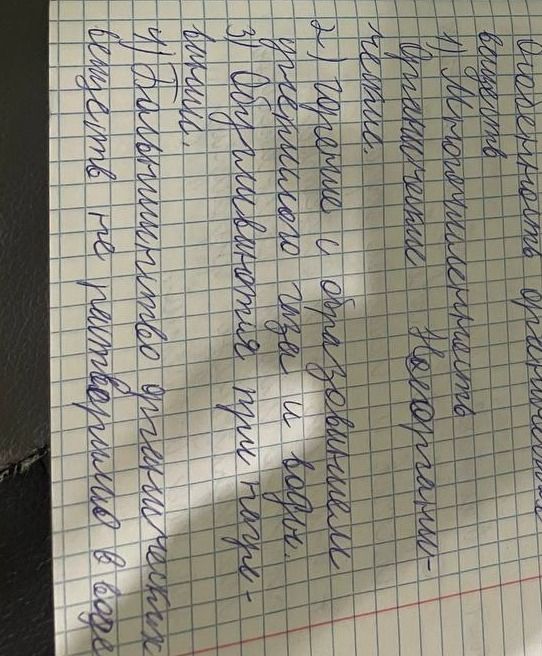 Особенность органических
веществ
1) Многочисленность
Органические Неоргани-
ческие.
2) Горение с образованием
углекислого газа и воды.
3) Обугливаются при нагре-
вании.
4) Большинство органических
веществ не растворимо в воде